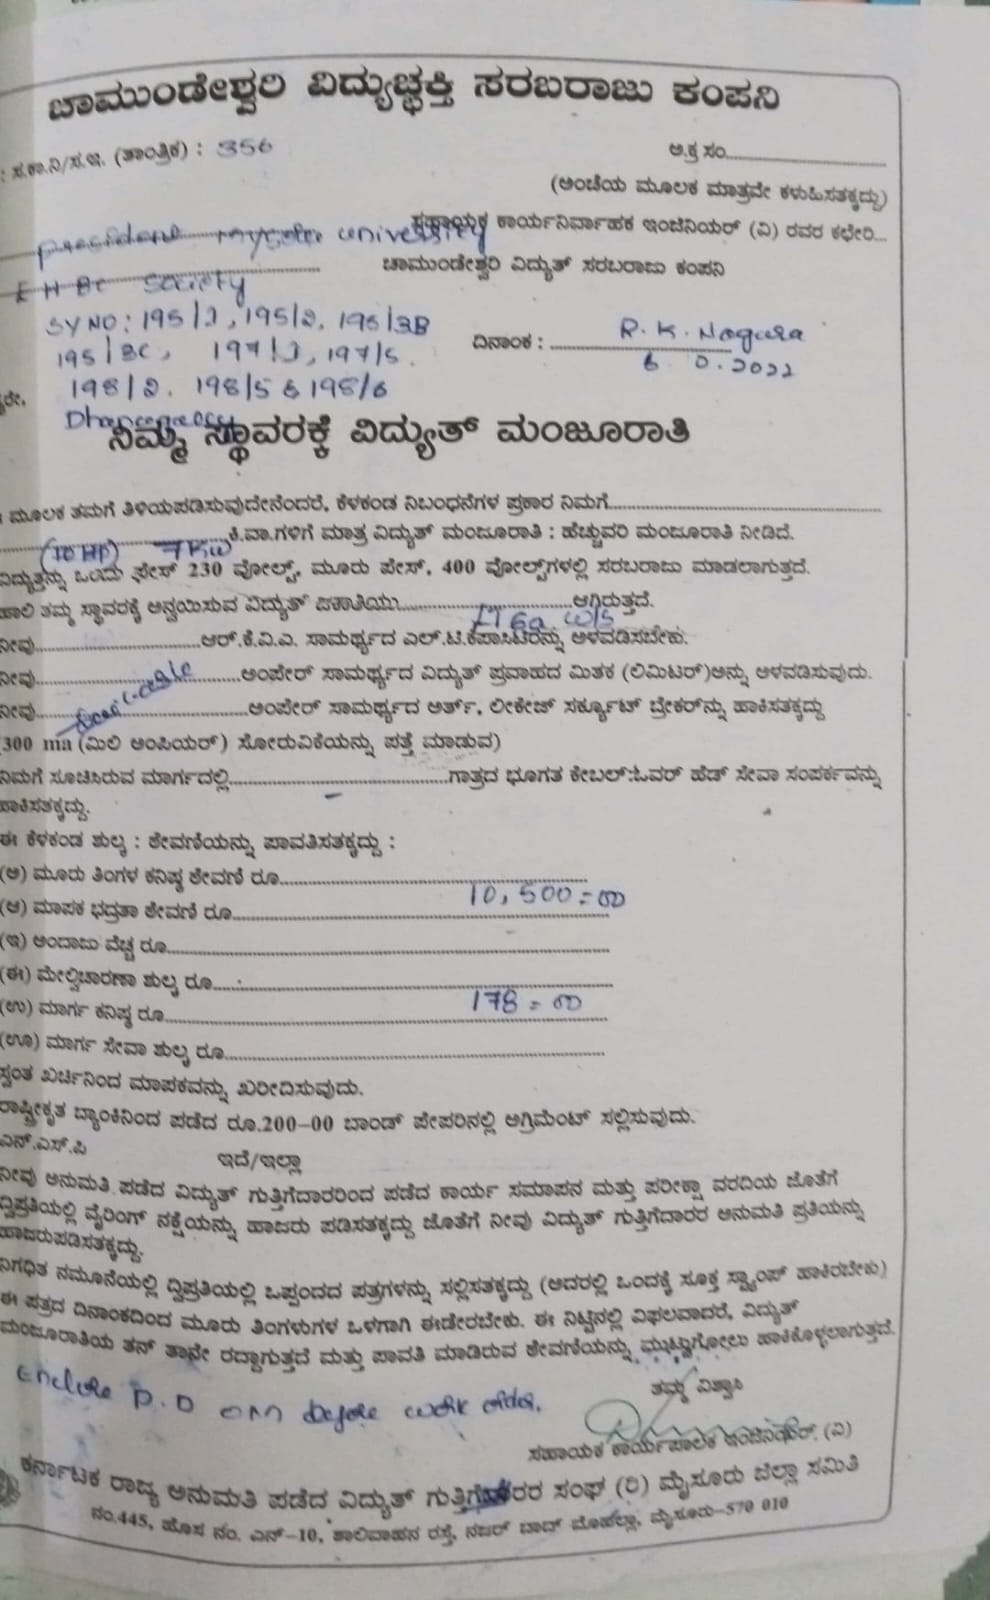 ಚಾಮುಂಡೇಶ್ವರಿ ವಿದ್ಯುಚ್ಛಕ್ತಿ ಸರಬರಾಜು ಕಂಪನಿ
: ಸ.ಕಾ.ನಿ/ಸ.ಇ. (ತಾಂತ್ರಿಕ) : 356
ಅ.ಕ್ರ ಸಂ.
(ಅಂಚೆಯ ಮೂಲಕ ಮಾತ್ರವೇ ಕಳುಹಿಸತಕ್ಕದ್ದು)
ಸಹಾಯಕ ಕಾರ್ಯನಿರ್ವಾಹಕ ಇಂಜಿನಿಯರ್ (ವಿ) ರವರ ಕಛೇರಿ...
university
ಚಾಮುಂಡೇಶ್ವರಿ ವಿದ್ಯುತ್ ಸರಬರಾಜು ಕಂಪನಿ
EHBC Society
SY NO: 195/1, 195/2, 195/3B
195/3C, 197/1, 197/5.
ದಿನಾಂಕ : R.K. Nagara
198/2. 198/5 & 198/6
2022
ನಿಮ್ಮ ಸ್ಥಾವರಕ್ಕೆ ವಿದ್ಯುತ್ ಮಂಜೂರಾತಿ
ಮೂಲಕ ತಮಗೆ ತಿಳಿಯಪಡಿಸುವುದೇನೆಂದರೆ, ಕೆಳಕಂಡ ನಿಬಂಧನೆಗಳ ಪ್ರಕಾರ ನಿಮಗೆ
(10 HP) 7KW ಕಿ.ವಾ.ಗಳಿಗೆ ಮಾತ್ರ ವಿದ್ಯುತ್ ಮಂಜೂರಾತಿ : ಹೆಚ್ಚುವರಿ ಮಂಜೂರಾತಿ ನೀಡಿದೆ.
ವಿದ್ಯುತ್ತನ್ನು ಒಂದು ಫೇಸ್ 230 ವೋಲ್ಟ್, ಮೂರು ಪೇಸ್, 400 ವೋಲ್ಟ್‌ಗಳಲ್ಲಿ ಸರಬರಾಜು ಮಾಡಲಾಗುತ್ತದೆ.
ಹಾಲಿ ತಮ್ಮ ಸ್ಥಾವರಕ್ಕೆ ಅನ್ವಯಿಸುವ ವಿದ್ಯುತ್ ಜಕಾತಿಯು LT6a w/s ಆಗಿರುತ್ತದೆ.
ನೀವು ಆರ್.ಕೆ.ವಿ.ಎ. ಸಾಮರ್ಥ್ಯದ ಎಲ್.ಟಿ.ಕೆಪಾಸಿಟರನ್ನು ಅಳವಡಿಸಬೇಕು.
ನೀವು ಅಂಪೇರ್ ಸಾಮರ್ಥ್ಯದ ವಿದ್ಯುತ್ ಪ್ರವಾಹದ ಮಿತಕ (ಲಿಮಿಟರ್)ಅನ್ನು ಅಳವಡಿಸುವುದು.
ನೀವು ಅಂಪೇರ್ ಸಾಮರ್ಥ್ಯದ ಅರ್ತ್, ಲೀಕೇಜ್ ಸರ್ಕ್ಯೂಟ್ ಬ್ರೇಕರ್‌ನ್ನು ಹಾಕಿಸತಕ್ಕದ್ದು
(300 ma (ಮಿಲಿ ಅಂಪಿಯರ್) ಸೋರುವಿಕೆಯನ್ನು ಪತ್ತೆ ಮಾಡುವ)
ನಿಮಗೆ ಸೂಚಿಸಿರುವ ಮಾರ್ಗದಲ್ಲಿ ಗಾತ್ರದ ಭೂಗತ ಕೇಬಲ್:ಓವರ್ ಹೆಡ್ ಸೇವಾ ಸಂಪರ್ಕವನ್ನು
ಹಾಕಿಸತಕ್ಕದ್ದು.
ಈ ಕೆಳಕಂಡ ಶುಲ್ಕ : ಠೇವಣಿಯನ್ನು ಪಾವತಿಸತಕ್ಕದ್ದು :
(ಅ) ಮೂರು ತಿಂಗಳ ಕನಿಷ್ಠ ಠೇವಣಿ ರೂ.
(ಆ) ಮಾಪಕ ಭದ್ರತಾ ಠೇವಣಿ ರೂ. 10,500=00
(ಇ) ಅಂದಾಜು ವೆಚ್ಚ ರೂ.
(ಈ) ಮೇಲ್ವಿಚಾರಣಾ ಶುಲ್ಕ ರೂ.
(ಉ) ಮಾರ್ಗ ಕನಿಷ್ಠ ರೂ. 178=00
(ಊ) ಮಾರ್ಗ ಸೇವಾ ಶುಲ್ಕ ರೂ.
ಸ್ವಂತ ಖರ್ಚಿನಿಂದ ಮಾಪಕವನ್ನು ಖರೀದಿಸುವುದು.
ರಾಷ್ಟ್ರೀಕೃತ ಬ್ಯಾಂಕಿನಿಂದ ಪಡೆದ ರೂ.200-00 ಬಾಂಡ್ ಪೇಪರಿನಲ್ಲಿ ಅಗ್ರಿಮೆಂಟ್ ಸಲ್ಲಿಸುವುದು.
ಎನ್.ಎಸ್.ಪಿ ಇದೆ/ಇಲ್ಲಾ
ನೀವು ಅನುಮತಿ ಪಡೆದ ವಿದ್ಯುತ್ ಗುತ್ತಿಗೆದಾರರಿಂದ ಪಡೆದ ಕಾರ್ಯ ಸಮಾಪನ ಮತ್ತು ಪರೀಕ್ಷಾ ವರದಿಯ ಜೊತೆಗೆ
ದ್ವಿಪ್ರತಿಯಲ್ಲಿ ವೈರಿಂಗ್ ನಕ್ಷೆಯನ್ನು ಹಾಜರು ಪಡಿಸತಕ್ಕದ್ದು ಜೊತೆಗೆ ನೀವು ವಿದ್ಯುತ್ ಗುತ್ತಿಗೆದಾರರ ಅನುಮತಿ ಪ್ರತಿಯನ್ನು
ಹಾಜರುಪಡಿಸತಕ್ಕದ್ದು.
ನಿಗಧಿತ ನಮೂನೆಯಲ್ಲಿ ದ್ವಿಪ್ರತಿಯಲ್ಲಿ ಒಪ್ಪಂದದ ಪತ್ರಗಳನ್ನು ಸಲ್ಲಿಸತಕ್ಕದ್ದು (ಅದರಲ್ಲಿ ಒಂದಕ್ಕೆ ಸೂಕ್ತ ಸ್ಟ್ಯಾಂಪ್ ಹಾಕಿರಬೇಕು)
ಈ ಪತ್ರದ ದಿನಾಂಕದಿಂದ ಮೂರು ತಿಂಗಳುಗಳ ಒಳಗಾಗಿ ಈಡೇರಬೇಕು. ಈ ನಿಟ್ಟಿನಲ್ಲಿ ವಿಫಲವಾದರೆ, ವಿದ್ಯುತ್
ಮಂಜೂರಾತಿಯ ತನ್ ತಾನೇ ರದ್ದಾಗುತ್ತದೆ ಮತ್ತು ಪಾವತಿ ಮಾಡಿರುವ ಠೇವಣಿಯನ್ನು ಮುಟ್ಟುಗೋಲು ಹಾಕಿಕೊಳ್ಳಲಾಗುತ್ತದೆ.
Enclose D.D before work order.
ತಮ್ಮ ವಿಶ್ವಾಸಿ
ಸಹಾಯಕ ಕಾರ್ಯಪಾಲಕ ಇಂಜಿನಿಯರ್. (ವಿ)
ಕರ್ನಾಟಕ ರಾಜ್ಯ ಅನುಮತಿ ಪಡೆದ ವಿದ್ಯುತ್ ಗುತ್ತಿಗೆದಾರರ ಸಂಘ (ರಿ) ಮೈಸೂರು ಜಿಲ್ಲಾ ಸಮಿತಿ
ನಂ.445, ಹೊಸ ನಂ. ಎನ್-10, ಶಾಲಿವಾಹನ ರಸ್ತೆ, ನಜರ್ ಬಾದ್ ಮೊಹಲ್ಲಾ, ಮೈಸೂರು-570 010